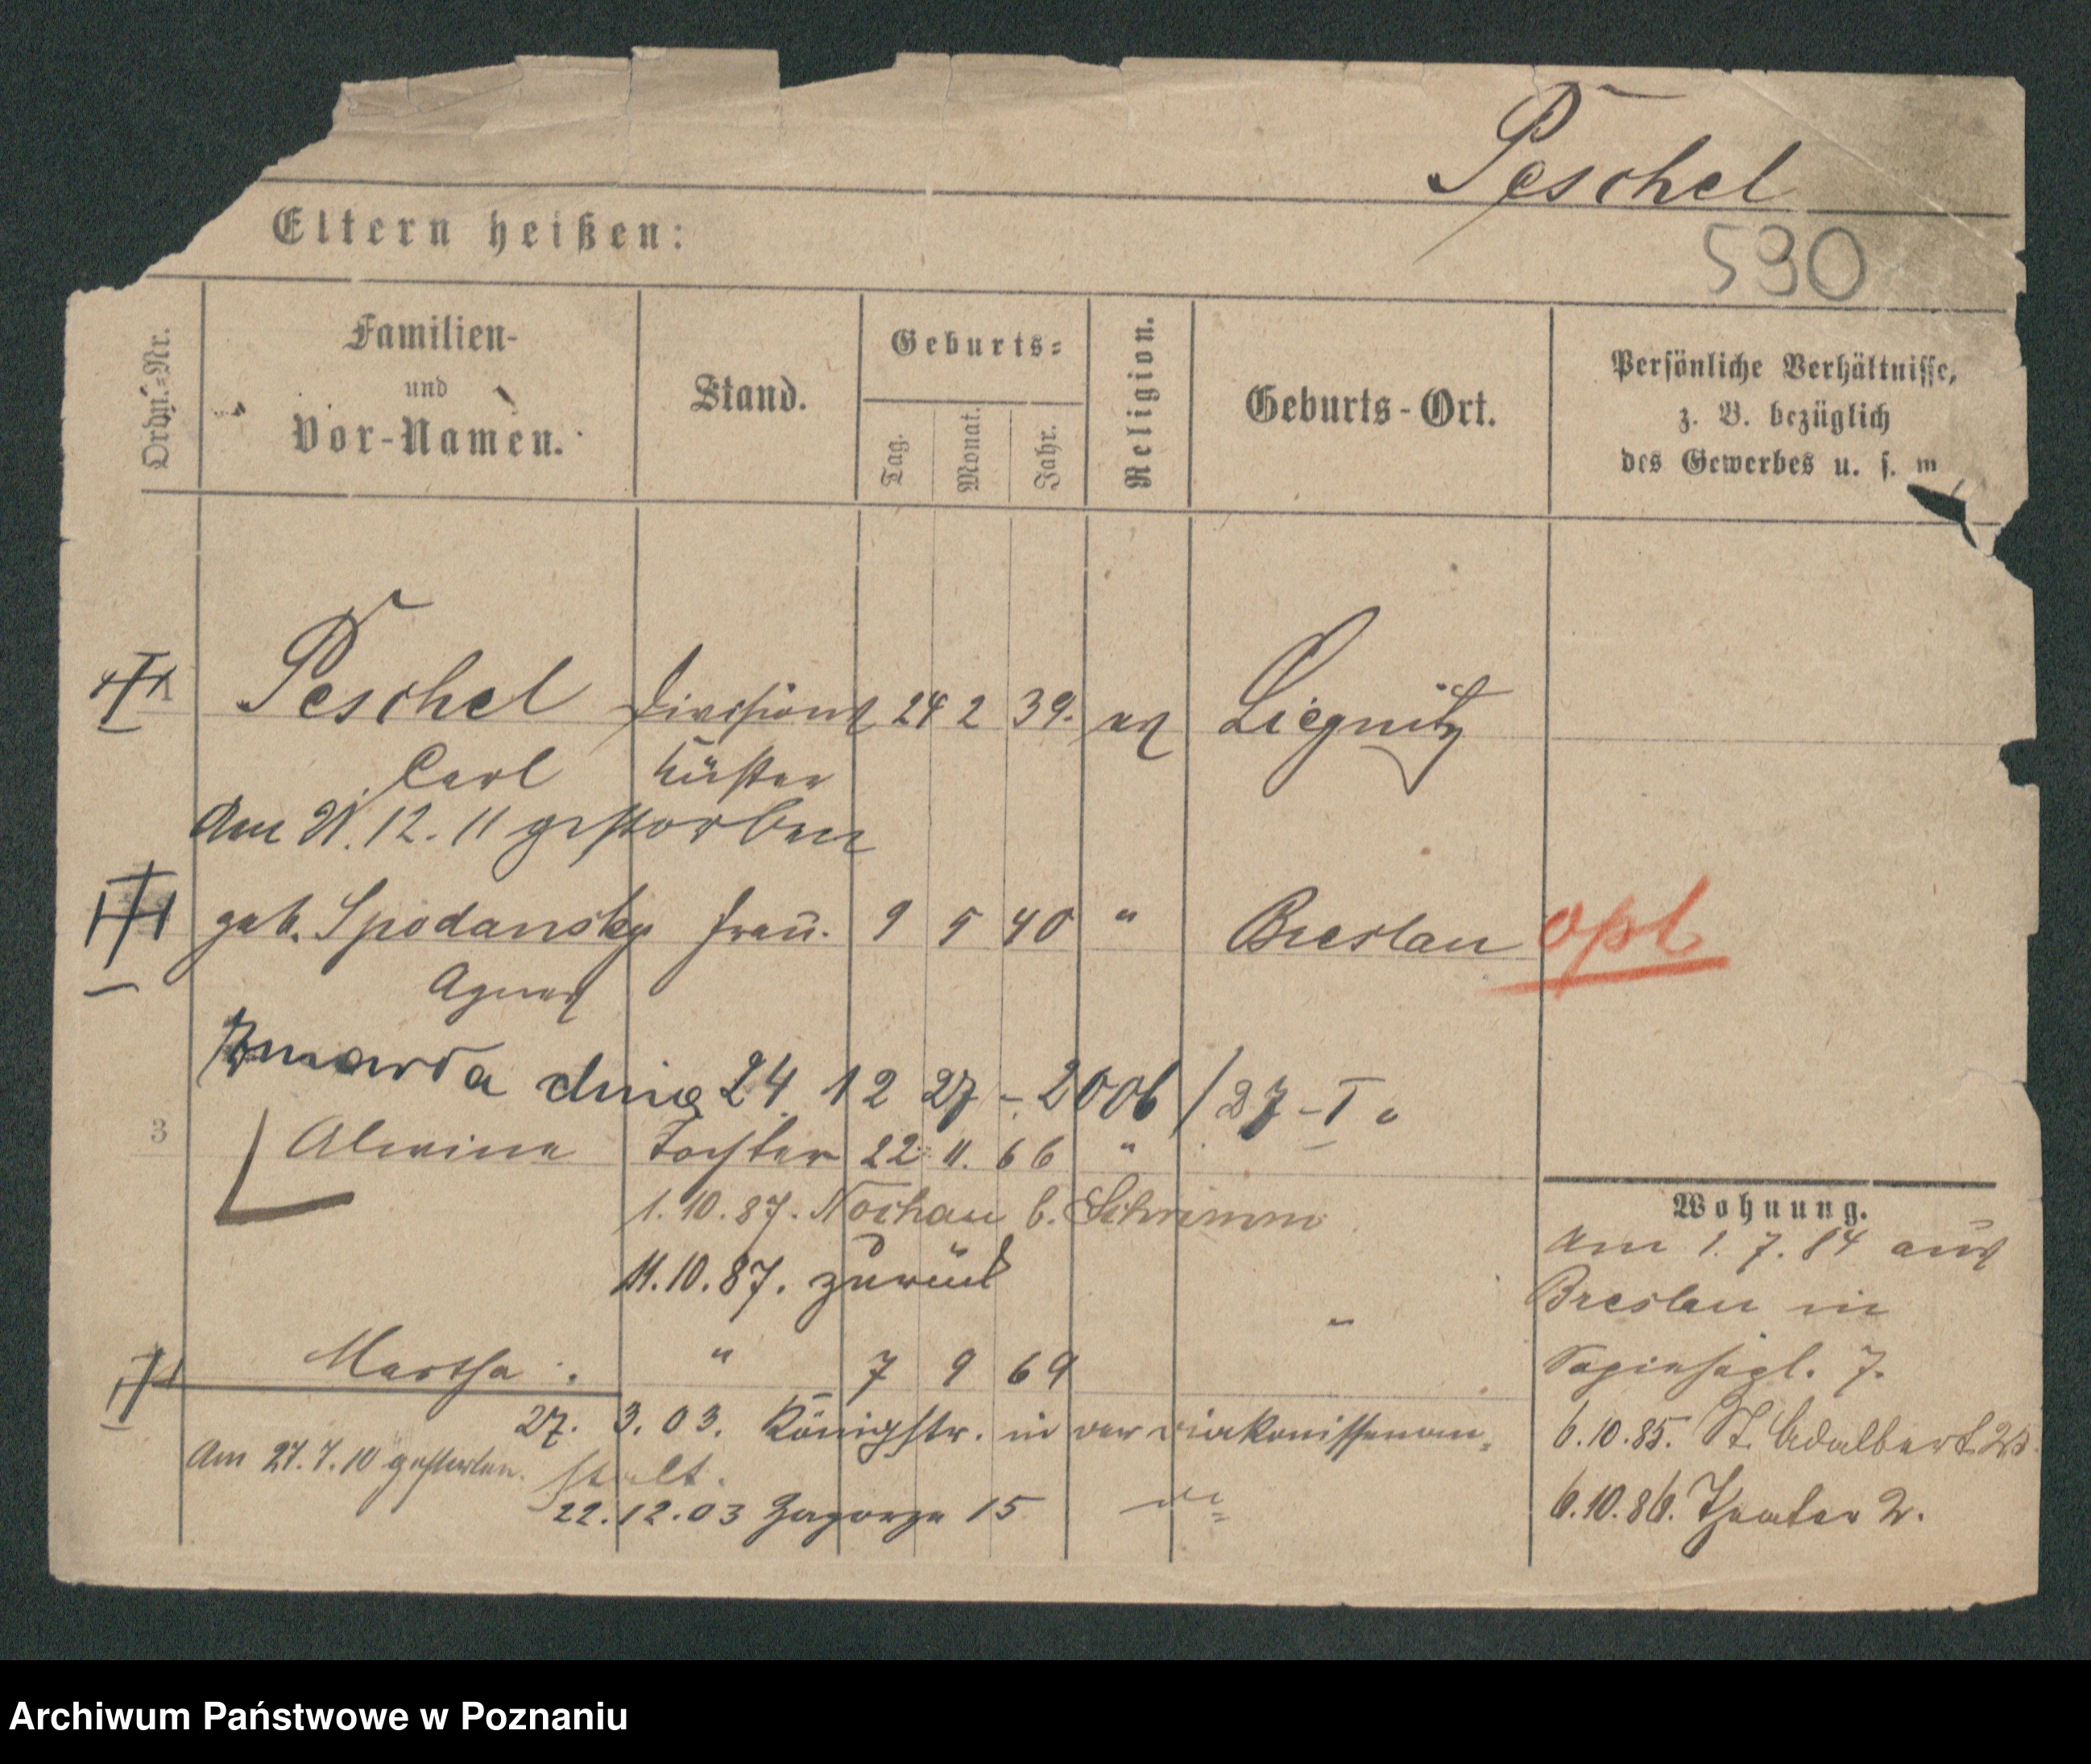 Peschel
590
Eltern heißen:
Ordn.-Nr.
Familien-
und
Vor-Namen.
Stand.
Geburts-
Tag.
Monat.
Jahr.
Religion.
Geburts-Ort.
Persönliche Verhältnisse,
z. B. bezüglich
des Gewerbes u. s. w
Peschel Divisions 24 2 39. ev Liegnitz
Carl Küster
Am 21.12.11 gestorben
geb. Spodansky Frau. 9 5 40 " Breslau opl
Agnes
Zmarła dnia 24 12 27 - 2006/27 - I
3 Alwine Tochter 22 11. 66 "
1.10.87. Nochau b. Schrimm
11.10.87. zurück
Martha " 7 9 69 "
27. 3. 03. Königstr. in der Diakonissenan-
stalt.
Am 27.7.10 gestorben.
22.12.03 Zagorze 15
Wohnung.
Am 1.7.84 aus
Breslau in
7.
6.10.85. St. Adalbert
6.10.86. Theater 2.
Archiwum Państwowe w Poznaniu